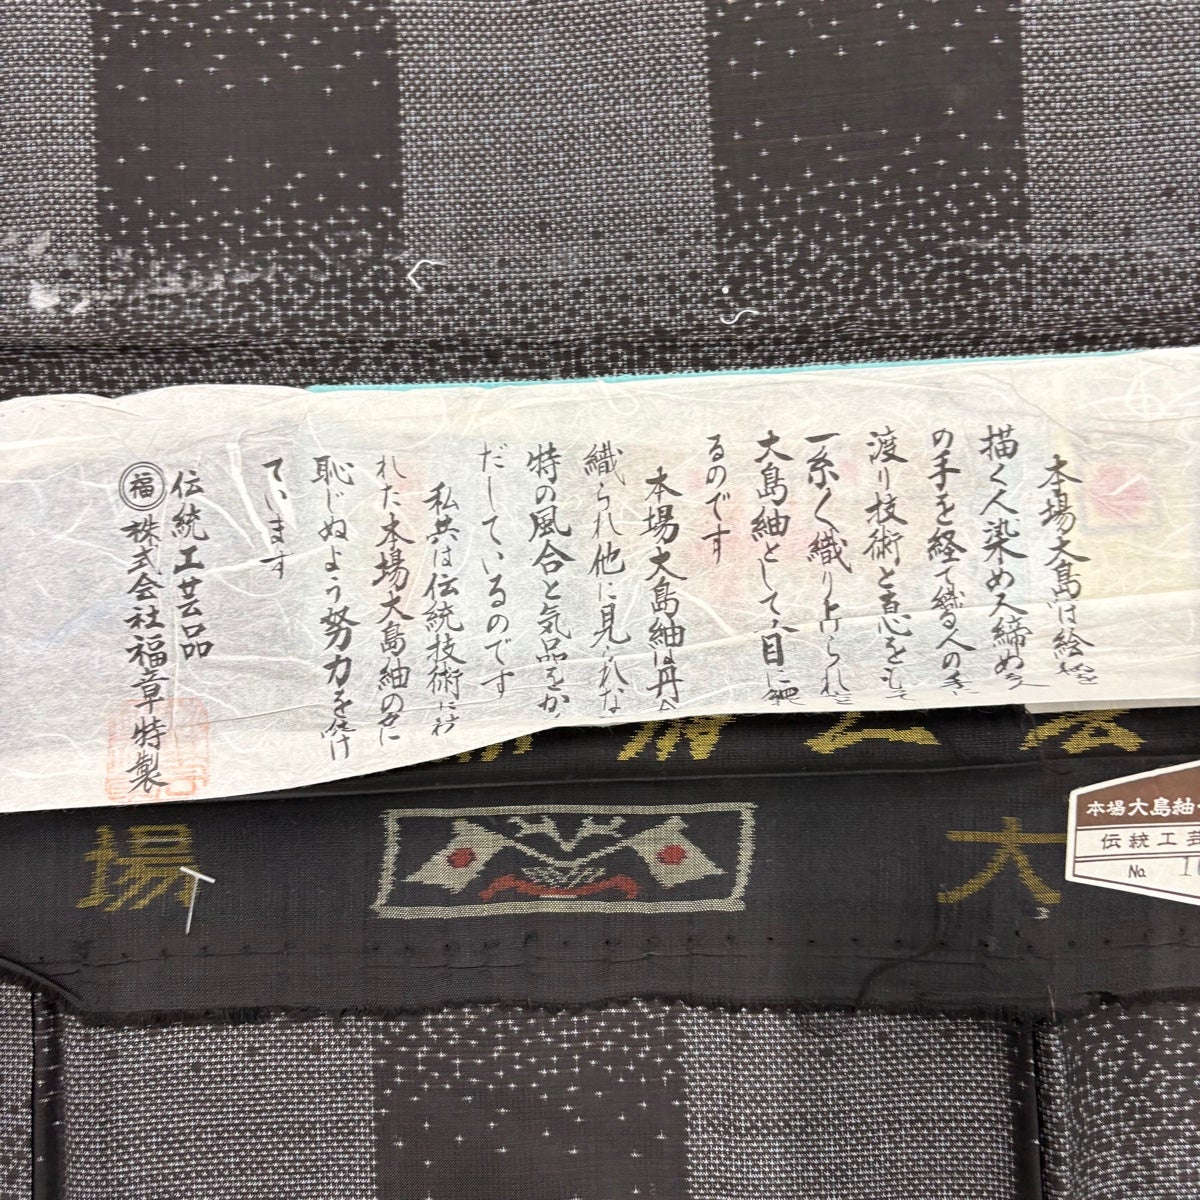 本場大島は絵
描く人染め人締め
の手を経て織る人の手
渡り技術と真心をも
一糸く織り上られ
大島紬として、人目に
るのです
本場大島紬は丹
織られ他に見られな
特の風合と気品をか
だしているのです
私共は伝統技術に
れた本場大島紬の名に
恥じぬよう努力を続け
ています
伝統工芸品
福 株式会社福章特製
大 場
本場大島紬
伝統工芸
No.